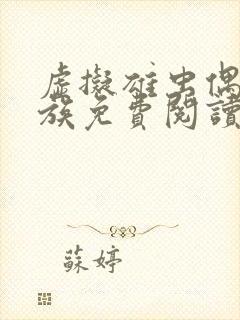 虛擬雄虫偶
族免費閱讀
蘇婷